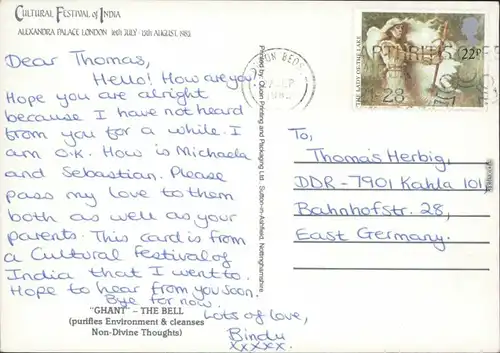 CULTURAL FESTIVAL OF INDIA
ALEXANDRA PALACE LONDON
Dear Thomas,
Hello! How are you?
Hope you are alright
because I have not heard
from you for a while. I
am O.K. How is Michaela
and Sebastian. Please
pass my love to them
both as well as your
parents. This card is from
a Cultural Festival of
India that I went to.
Hope to hear from you soon.
Bye for now.
Lots of love,
Bindu
xxxxx.
"GHANT" – THE BELL
(purifies Environment & cleanses
Non-Divine Thoughts)
Printed by: Olson Printing and Packaging Ltd. Sutton-in-Ashfield, Nottinghamshire
THE LADY OF THE LAKE
22P
To,
Thomas Herbig,
DDR - 7901 Kahla 101
Bahnhofstr. 28,
East Germany.